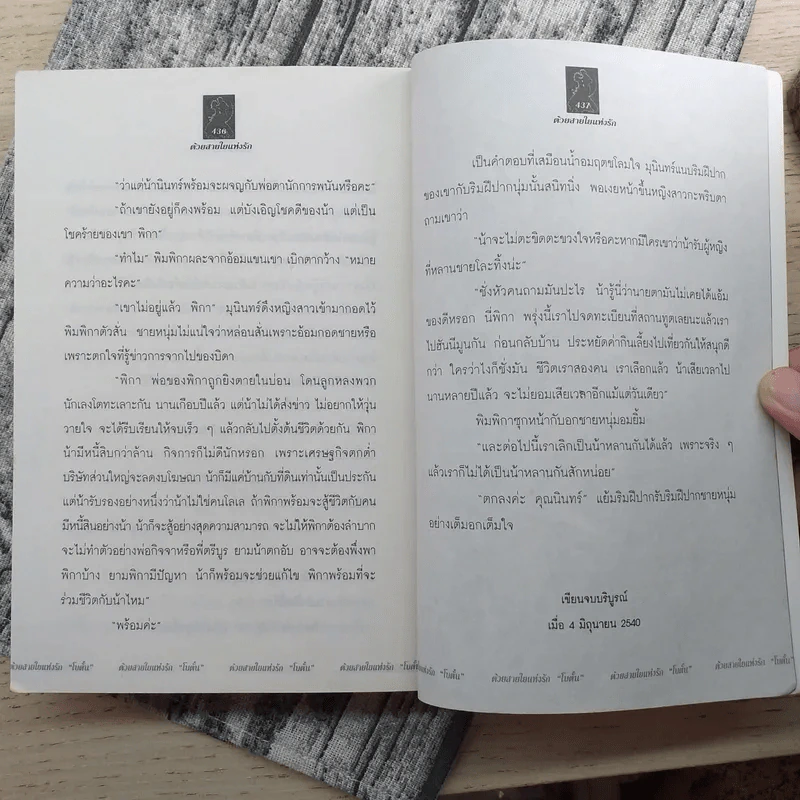 436
ด้วยสายใยแห่งรัก
"ว่าแต่น้านินทร์พร้อมจะผจญกับพ่อตานักการพนันหรือคะ"
"ถ้าเขายังอยู่ก็คงพร้อม แต่บังเอิญโชคดีของน้า แต่เป็น
โชคร้ายของเขา พิกา"
"ทำไม" พิมพิกาผละจากอ้อมแขนเขา เบิกตากว้าง "หมาย
ความว่าอะไรคะ"
"เขาไม่อยู่แล้ว พิกา" มุนินทร์ดึงหญิงสาวเข้ามากอดไว้
พิมพิกาตัวสั่น ชายหนุ่มไม่แน่ใจว่าหล่อนสั่นเพราะอ้อมกอดชายหรือ
เพราะตกใจที่รู้ข่าวการจากไปของบิดา
"พิกา พ่อของพิกาถูกยิงตายในบ่อน โดนลูกหลงพวก
นักเลงโตทะเลาะกัน นานเกือบปีแล้ว แต่น้าไม่ได้ส่งข่าว ไม่อยากให้วุ่น
วายใจ จะได้รีบเรียนให้จบเร็ว ๆ แล้วกลับไปตั้งต้นชีวิตด้วยกัน พิกา
น้ามีหนี้สิบกว่าล้าน กิจการก็ไม่ดีนักหรอก เพราะเศรษฐกิจตกต่ำ
บริษัทส่วนใหญ่จะลดงบโฆษณา น้าก็มีแค่บ้านกับที่ดินเท่านั้นเป็นประกัน
แต่น้ารับรองอย่างหนึ่งว่าน้าไม่ใช่คนโลเล ถ้าพิกาพร้อมจะสู้ชีวิตกับคน
มีหนี้สินอย่างน้า น้าก็จะสู้อย่างสุดความสามารถ จะไม่ให้พิกาต้องลำบาก
จะไม่ทำตัวอย่างพ่อกิจจาหรือพี่ตรีบูร ยามน้าตกอับ อาจจะต้องพึ่งพา
พิกาบ้าง ยามพิกามีปัญหา น้าก็พร้อมจะช่วยแก้ไข พิกาพร้อมที่จะ
ร่วมชีวิตกับน้าไหม"
"พร้อมค่ะ"
ด้วยสายใยแห่งรัก "โบตั๋น" ด้วยสายใยแห่งรัก "โบตั๋น" ด้วยสายใยแห่งรัก "โบตั๋น" ด้วยสายใยแห่งรัก "โบตั๋น"
437
ด้วยสายใยแห่งรัก
เป็นคำตอบที่เสมือนน้ำอมฤตชโลมใจ มุนินทร์แนบริมฝีปาก
ของเขากับริมฝีปากนุ่มนั้นสนิทนิ่ง พอเงยหน้าขึ้นหญิงสาวกะพริบตา
ถามเขาว่า
"น้าจะไม่ตะขิดตะขวงใจหรือคะหากมีใครเขาว่าน้ารับผู้หญิง
ที่หลานชายโละทิ้งน่ะ"
"ช่างหัวคนถามมันปะไร น้ารู้นี่ว่านายตามันไม่เคยได้แอ้ม
ของดีหรอก นี่พิกา พรุ่งนี้เราไปจดทะเบียนที่สถานทูตเลยนะแล้วเรา
ไปฮันนีมูนกัน ก่อนกลับบ้าน ประหยัดค่ากินเลี้ยงไปเที่ยวกันให้สนุกดี
กว่า ใครว่าไงก็ช่างมัน ชีวิตเราสองคน เราเลือกแล้ว น้าเสียเวลาไป
นานหลายปีแล้ว จะไม่ยอมเสียเวลาอีกแม้แต่วันเดียว"
พิมพิกาซุกหน้ากับอกชายหนุ่มอมยิ้ม
"และต่อไปนี้เราเลิกเป็นน้าหลานกันได้แล้ว เพราะจริง ๆ
แล้วเราก็ไม่ได้เป็นน้าหลานกันสักหน่อย"
"ตกลงค่ะ คุณนินทร์" แย้มริมฝีปากรับริมฝีปากชายหนุ่ม
อย่างเต็มอกเต็มใจ
เขียนจบบริบูรณ์
เมื่อ 4 มิถุนายน 2540
ด้วยสายใยแห่งรัก "โบตั๋น" ด้วยสายใยแห่งรัก "โบตั๋น" ด้วยสายใยแห่งรัก "โบตั๋น"